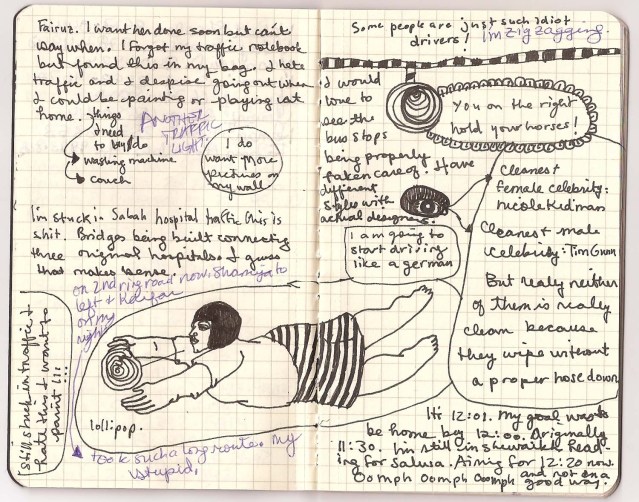 Fairuz. I want her done soon but can't
way when. I forgot my traffic notebook
but found this in my bag. I hate
traffic and I despise going out when
I could be painting or playing cat
home.
things
I need
to buy/do
washing machine
couch
ANOTHER
TRAFFIC
LIGHT.
I do
want more
pictures on
my wall
I'm stuck in Sabah hospital traffic this is
shit. Bridges being built connecting
three original hospitals. I guess
that makes sense.
on 2nd ring road now. Shamiya to
left &
on my
right
Still stuck in traffic &
hate this. I want to
paint!!!
lollipop.
took such a long route. my
stupid.
Some people are just such idiot
drivers!
I'm zigzagging.
I would
love to
see the
bus stops
being properly
taken care of. Have
different
styles with
actual designers.
You on the right
hold your horses!
I am going to
start driving
like a german
Cleanest
female celebrity:
nicole Kidman
Cleanest male
celebrity: Tim Gunn
But realy neither
of them is realy
clean because
they wipe without
a proper hose down
It's 12:01. My goal was to
be home by 12:00. Originally
11:30. I'm still in shuwaikh head-
ing for Salwa. Aiming for 12:20 now.
Oomph oomph oomph and not in a
good way.